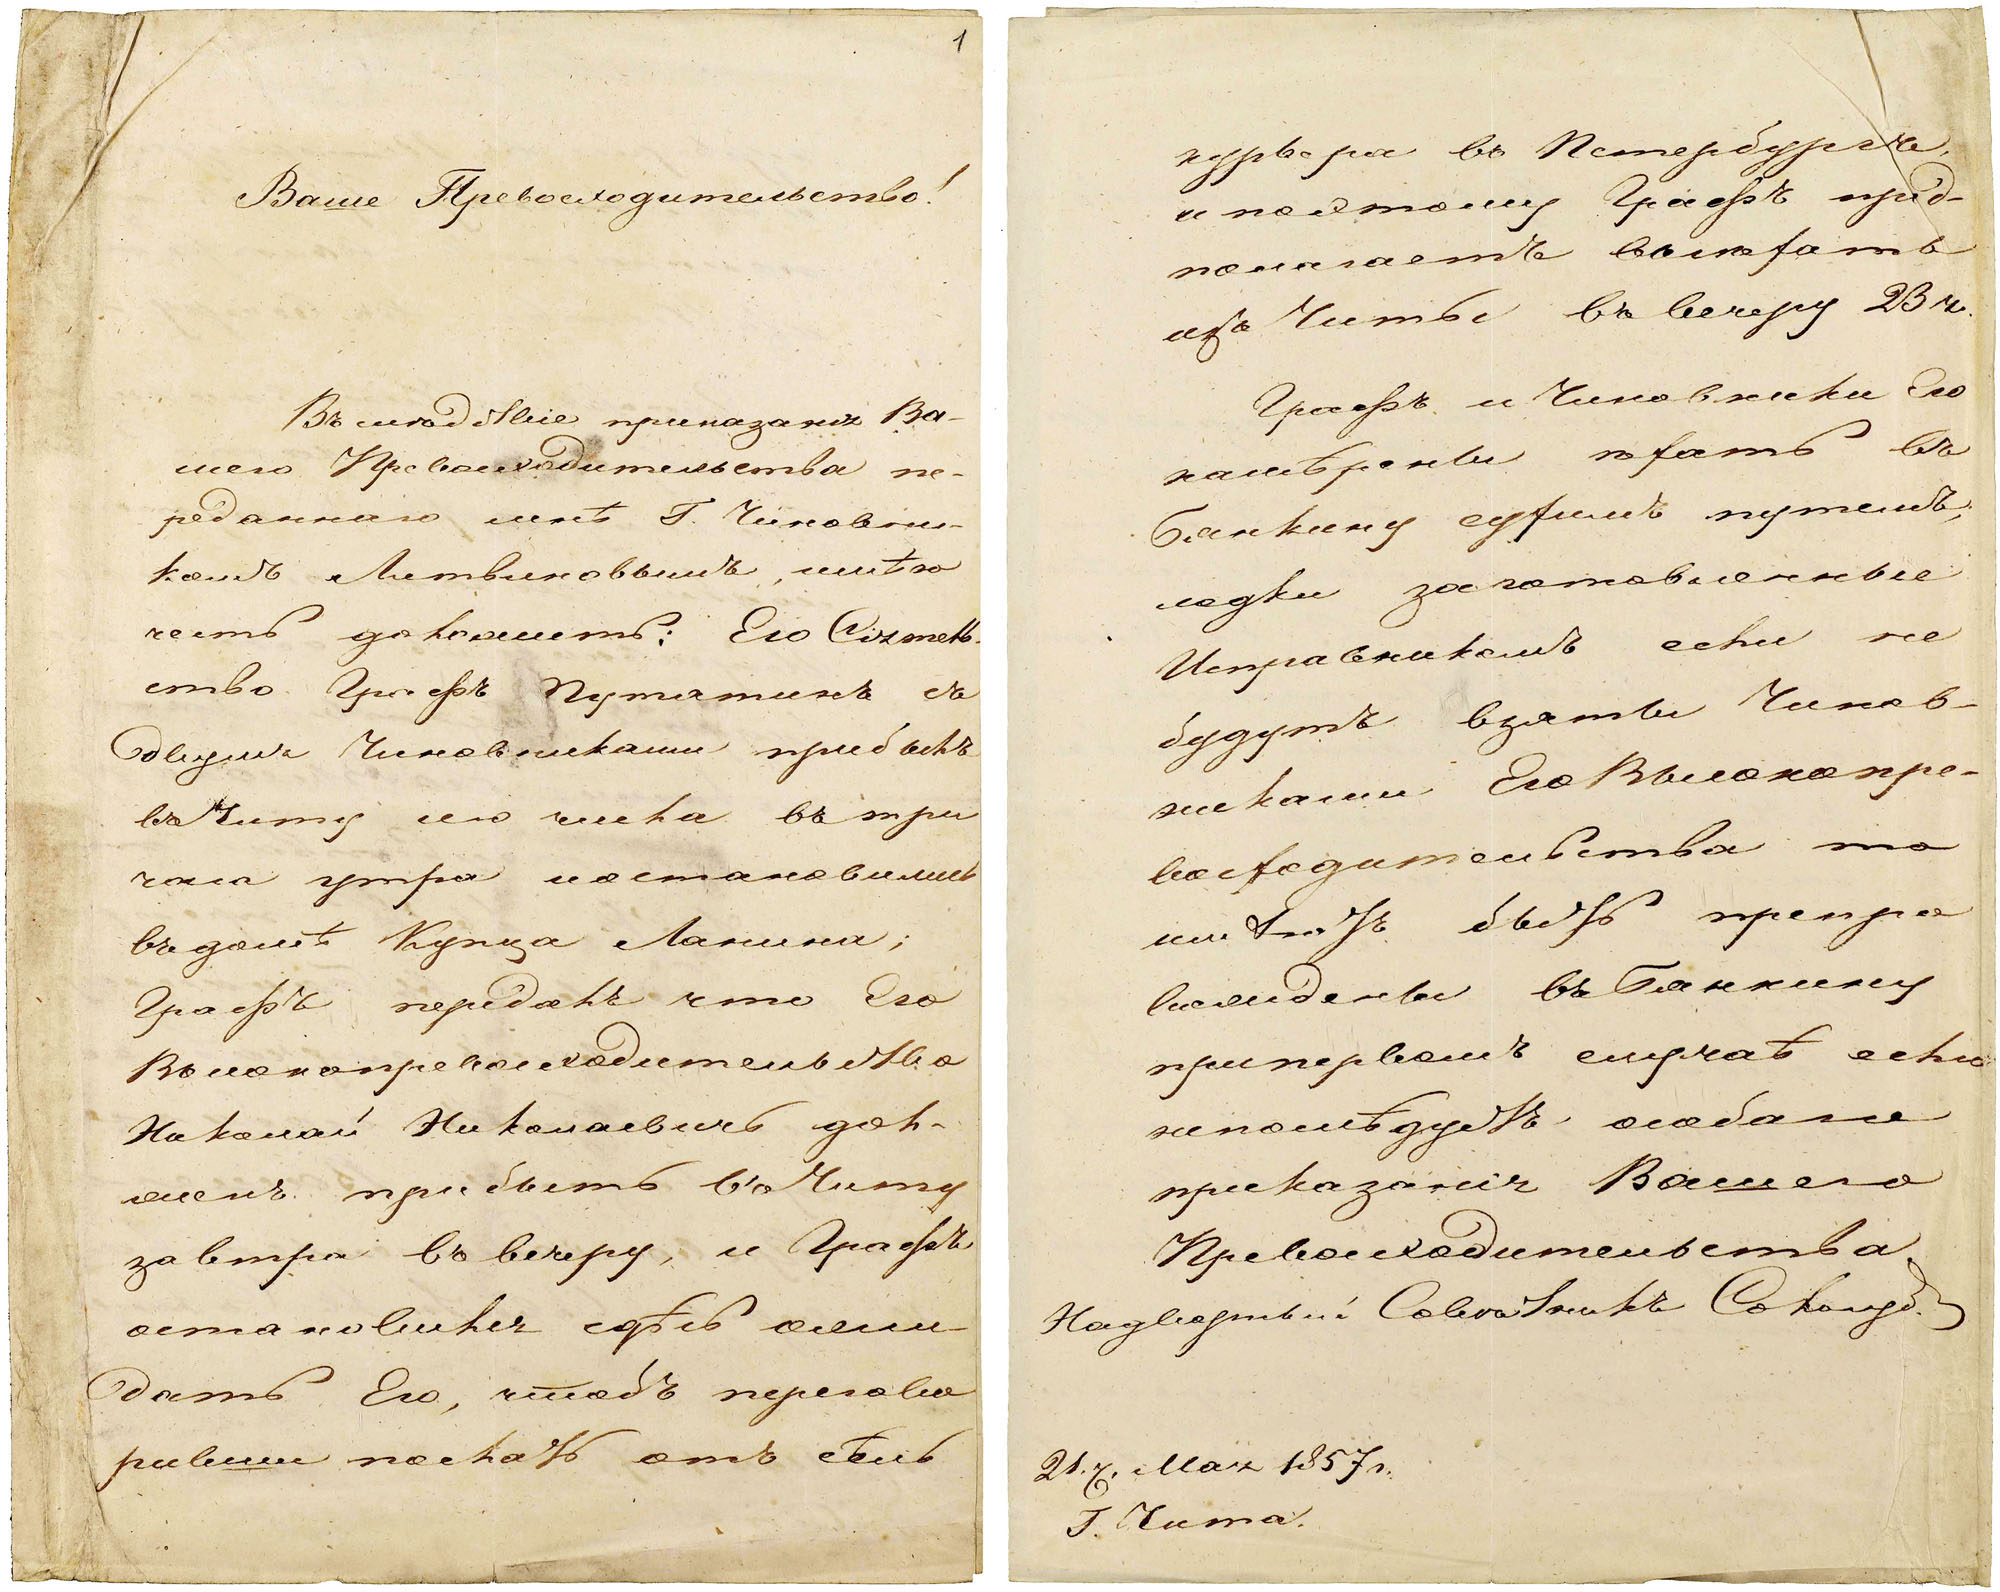 1
Ваше Превосходительство!
Въ слѣдствіе приказанія Ва-
шего Превосходительства пе-
реданнаго мнѣ Г. Чиновни-
комъ Литвиновымъ, имѣю
честь доложить: Его Сіятель-
ство Графъ Путятинъ съ
двумя Чиновниками прибылъ
въ Читу сего числа въ три
часа утра и остановились
въ домѣ Купца Лапина;
Графъ передалъ что Его
Высокопревосходительство
Николай Николаевичъ дол-
женъ прибыть въ Читу
завтра въ вечеру, и Графъ
остановился здѣсь ожи-
дать Его, чтобъ перегово
ривши послать отъ сѣль
курьера въ Петербургъ,
и поэтому Графъ пред-
полагаетъ выѣхать
изъ Читы въ вечеру 23 ч.
Графъ и Чиновники Его
намѣрены ѣхать въ
Бянкину сухимъ путемъ;
лодки заготовленные
Исправникомъ если не
будутъ взяты Чинов-
никами Его Высокопре-
восходительства то
имѣютъ быть препро
вождены въ Бянкину
при первомъ случаѣ если
не послѣдуетъ особаго
приказанія Вашего
Превосходительства.
Надворный Совѣтникъ
21. ч. Мая 1857 г.
Г. Чита.